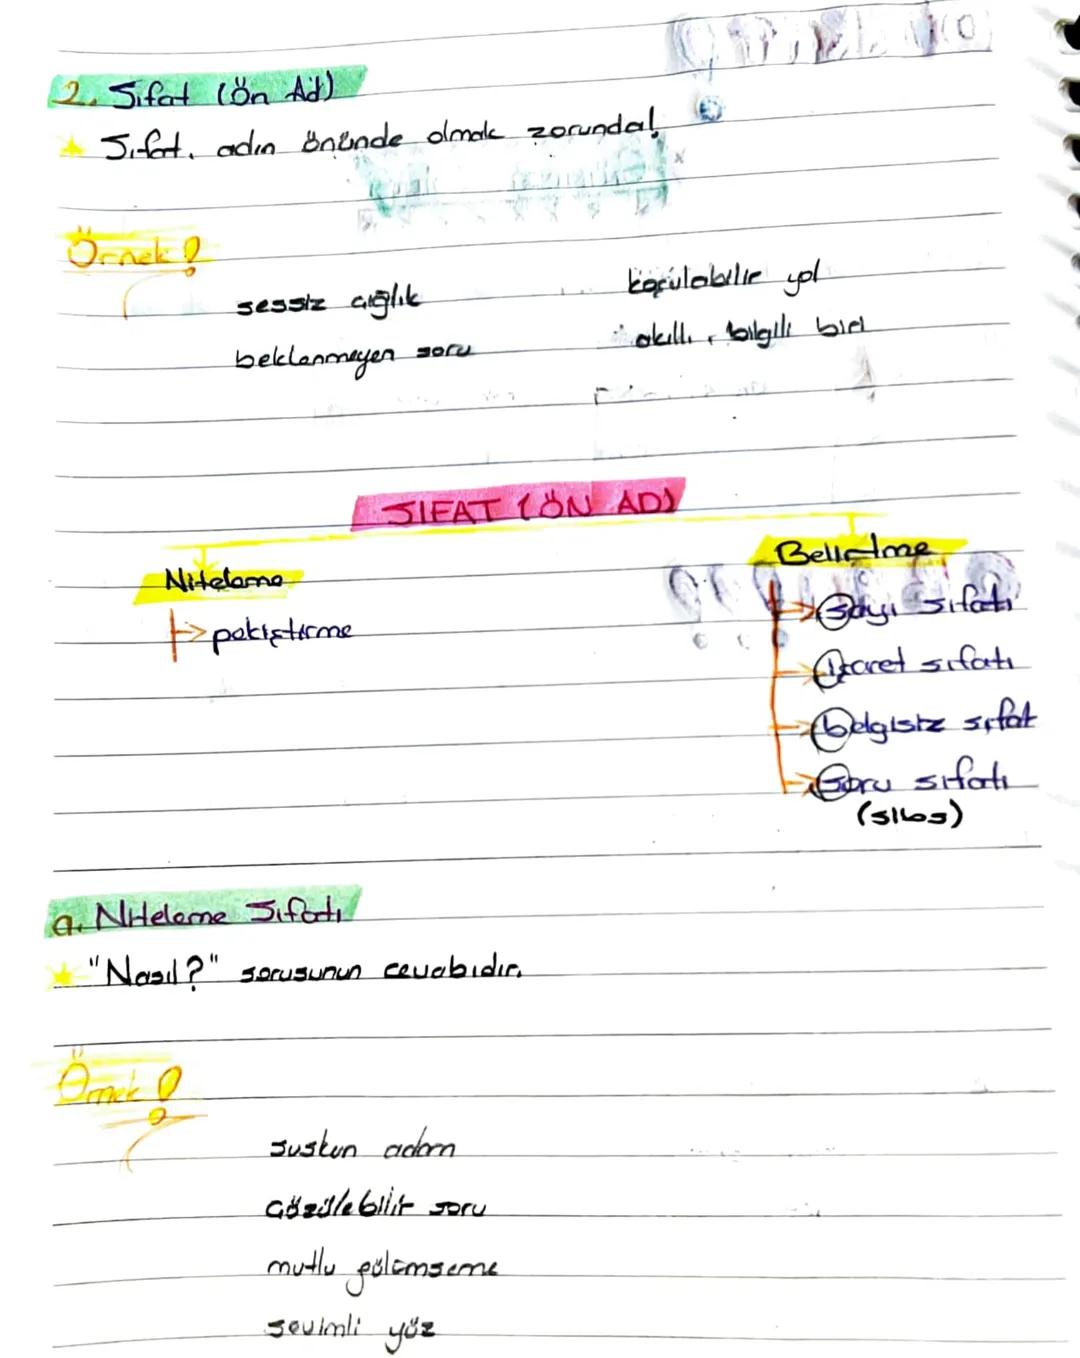 2. Sıfat (Ön Ad)
Sıfat, adın önünde olmak zorunda!
Örnek!
sessiz çığlık
koşulabilir yol
beklenmeyen soru
akıllı, bilgili biri
SIFAT (ÖN AD)
Niteleme
Belirtme
pekiştirme
Sayı sıfatı
İşaret sıfatı
belgisiz sıfat
Soru sıfatı
(sibs)
a. Niteleme Sıfatı
"Nasıl?" sorusunun cevabıdır.
Örnek!
suskun adam
çözülebilir soru
mutlu gülümseme
sevimli yüz